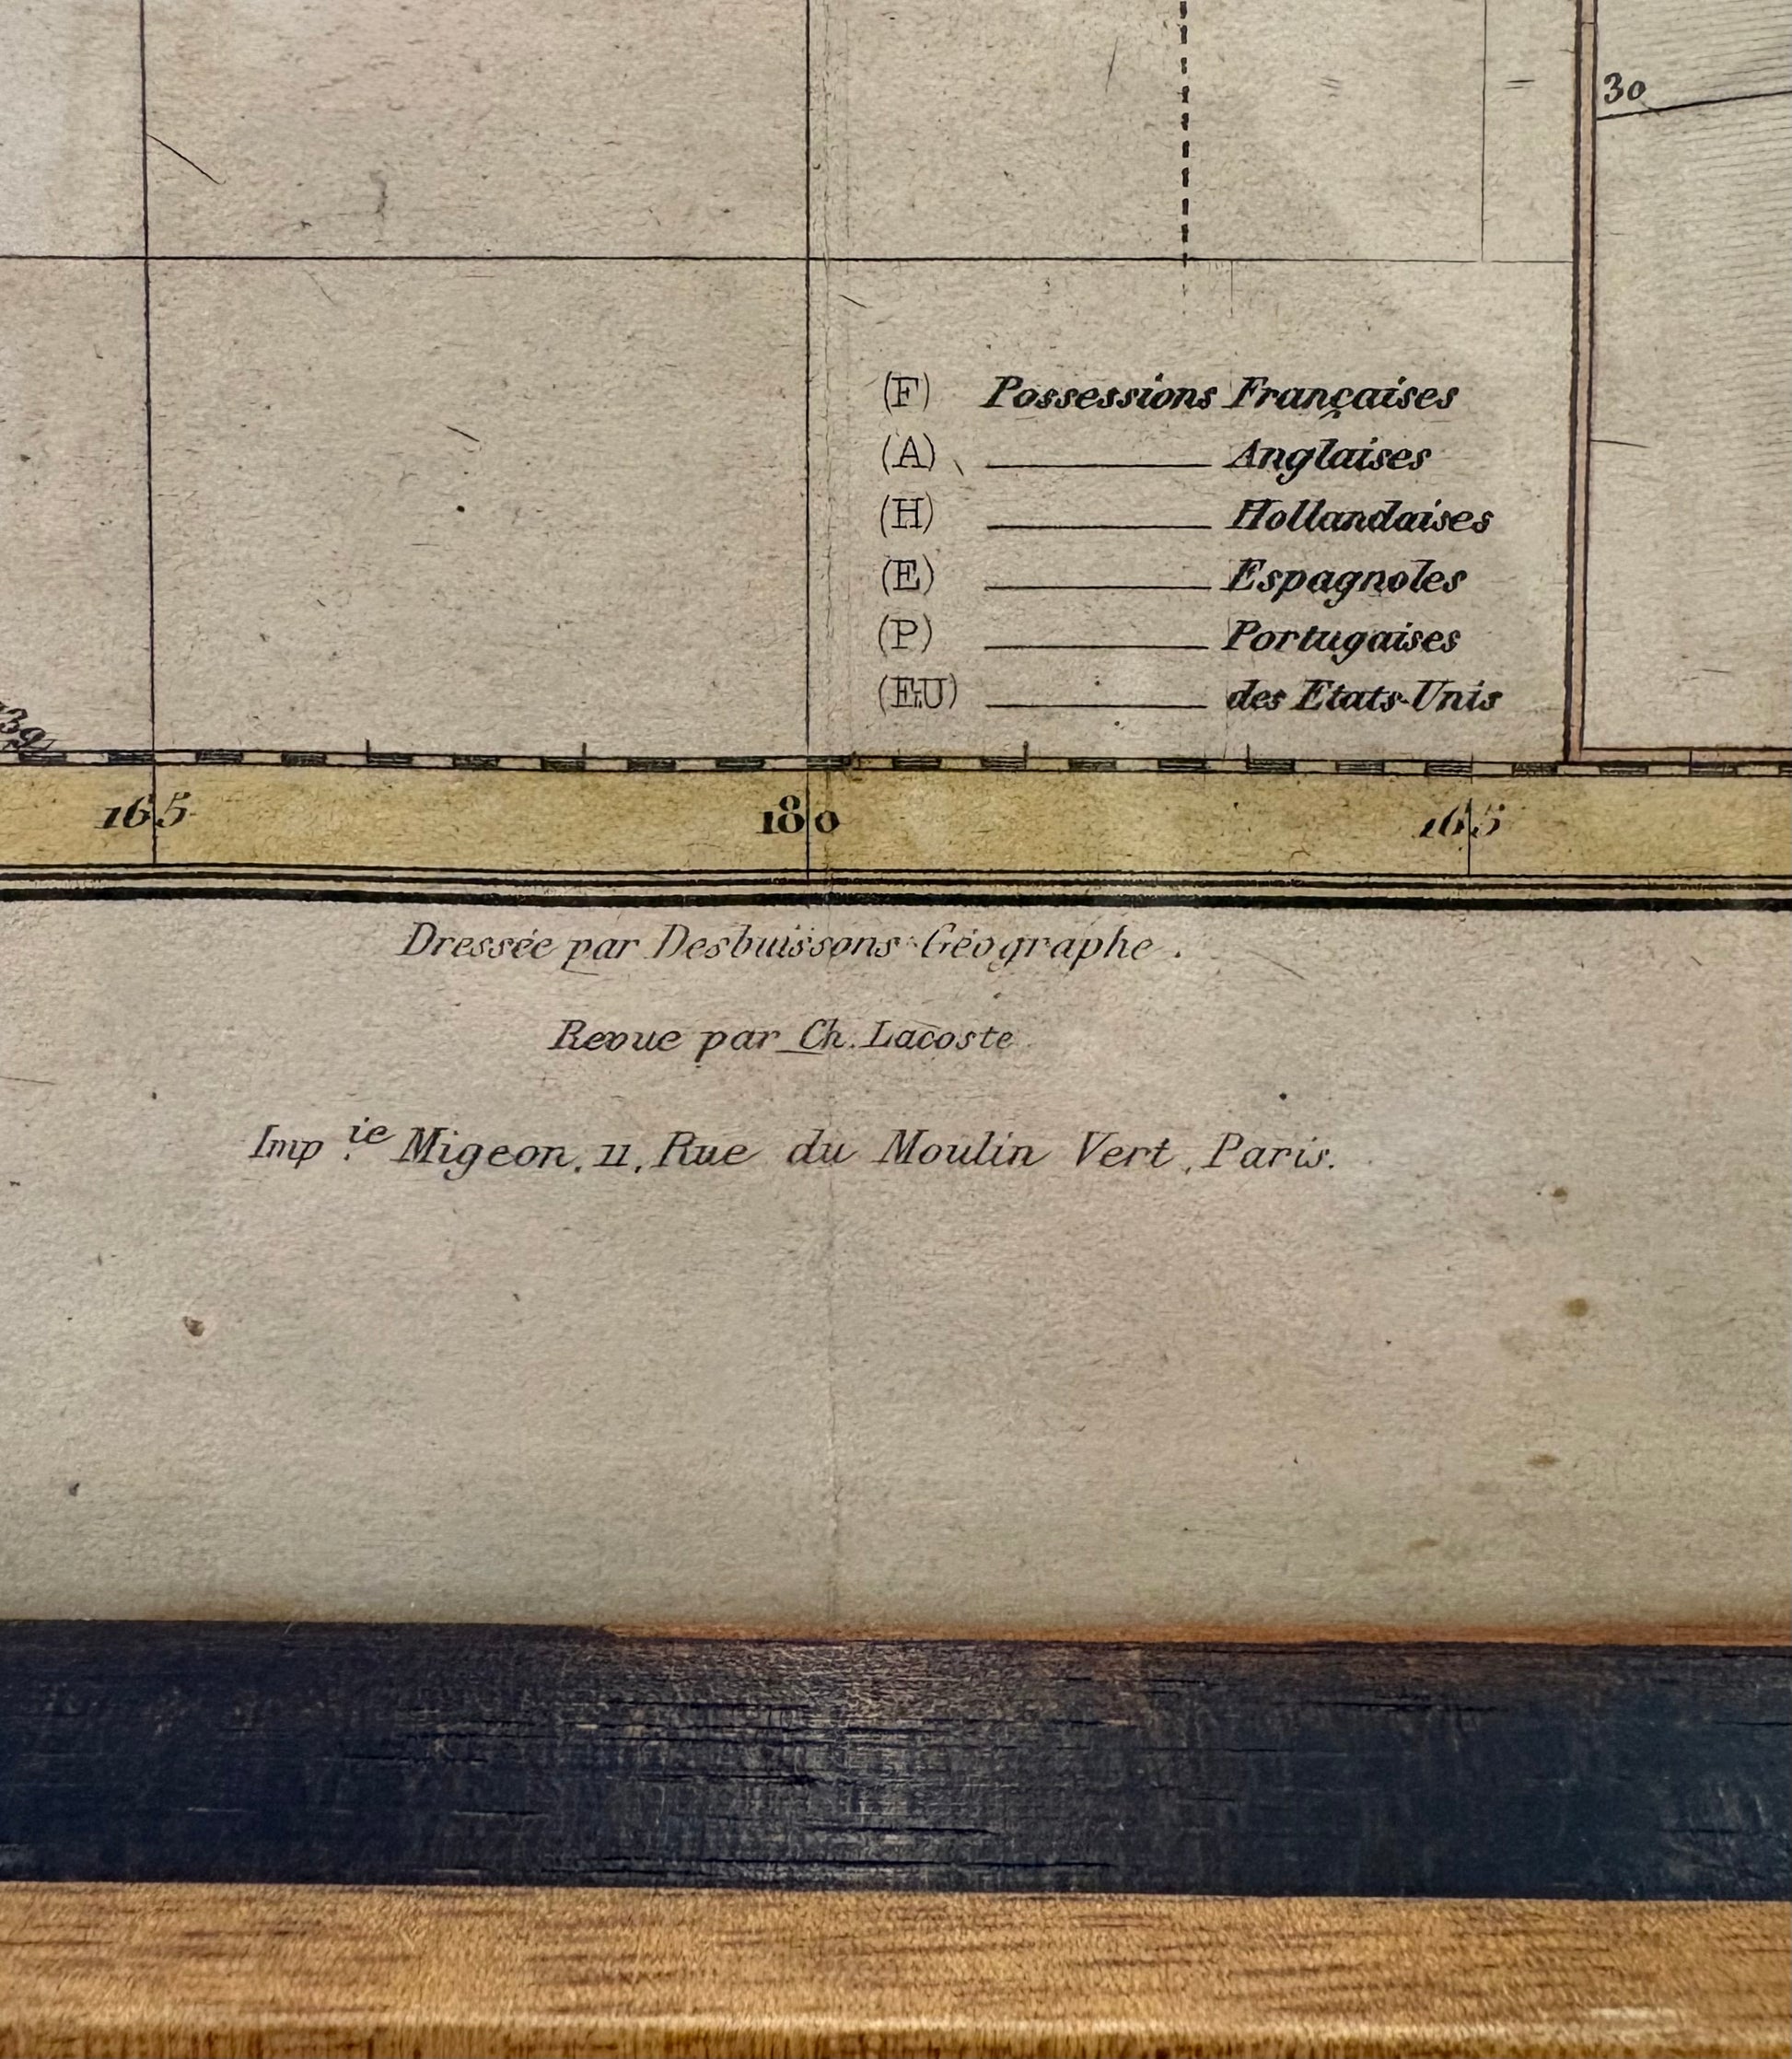 30
(F) Possessions Françaises
(A) Anglaises
(H) Hollandaises
(E) Espagnoles
(P) Portugaises
(E.U) des Etats-Unis
165 180 165
Dressée par Desbuissons Géographe.
Revue par Ch. Lacoste
Imp.ie Migeon, 11, Rue du Moulin Vert, Paris.